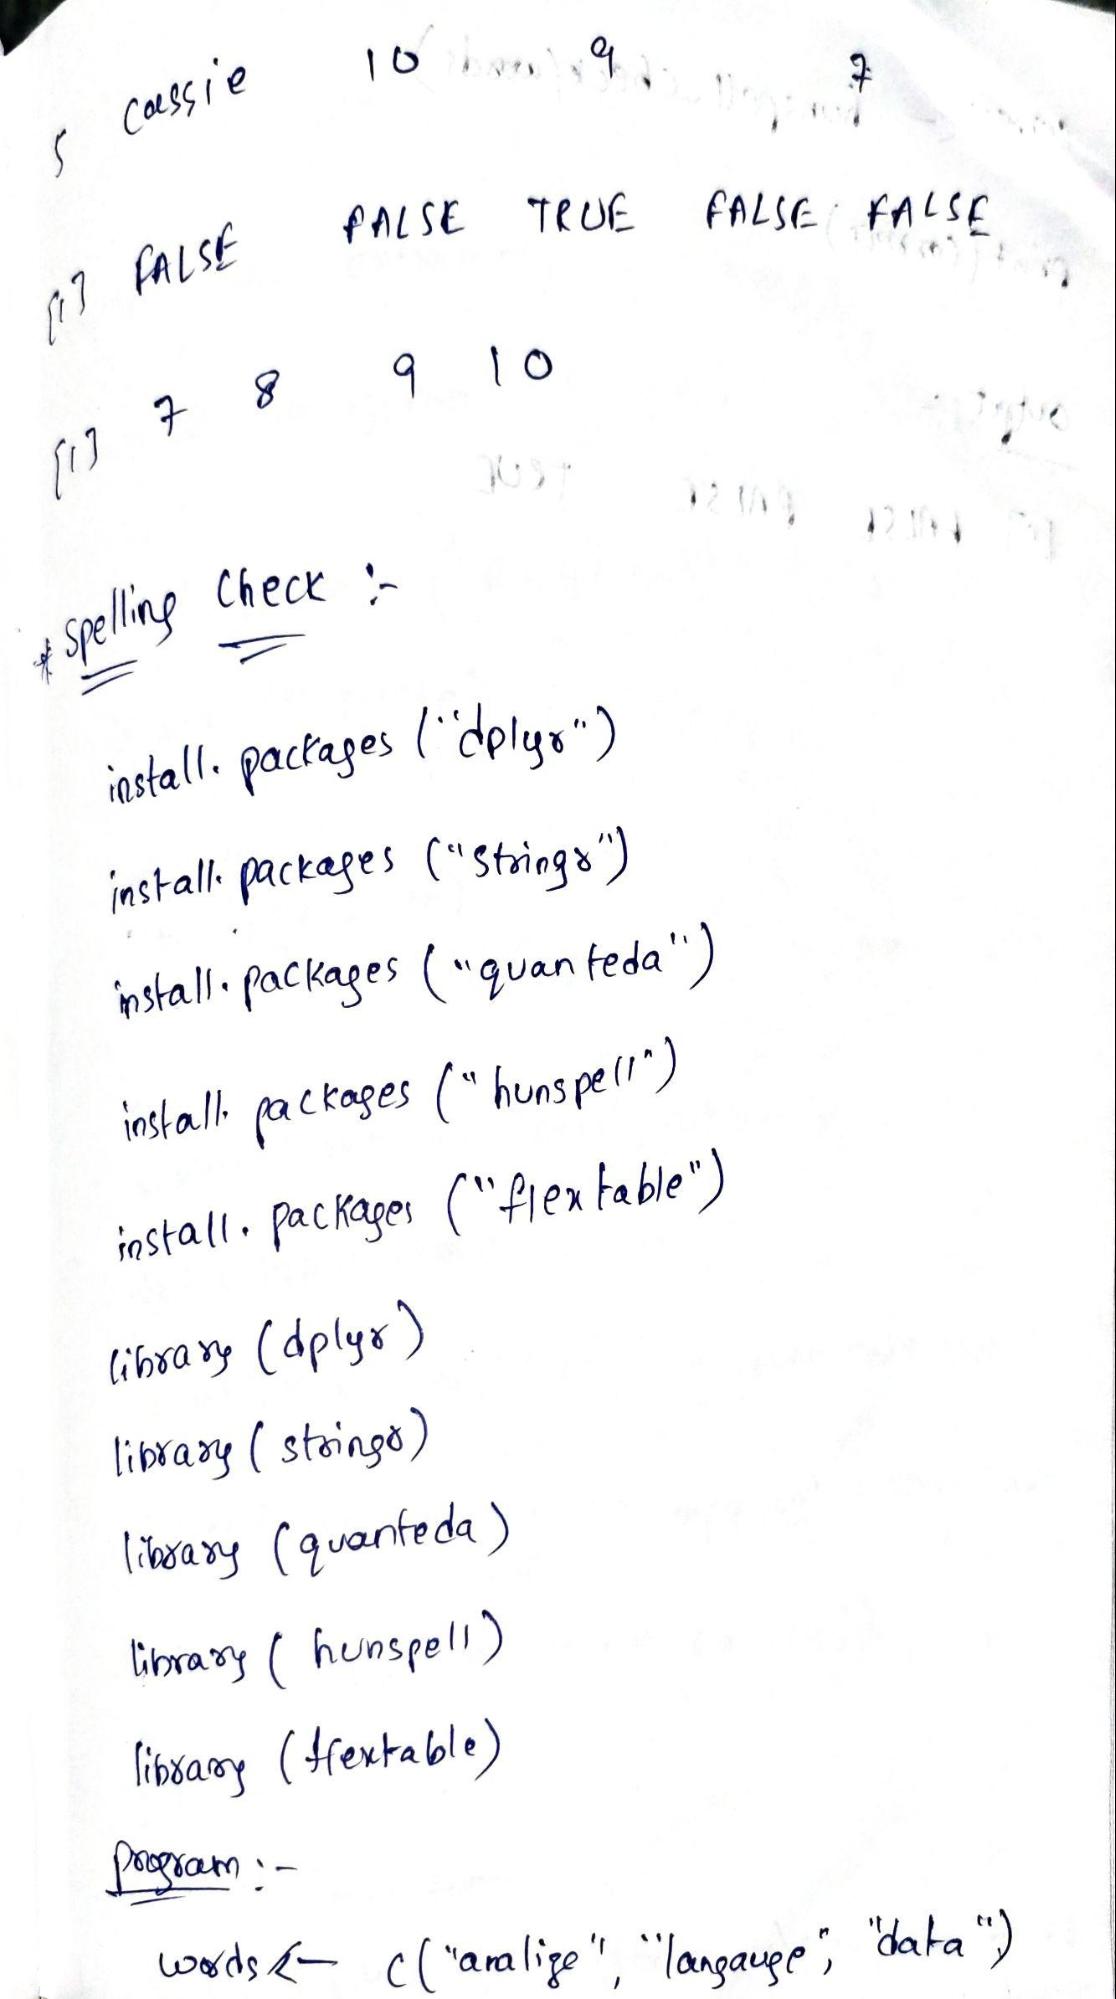 5 Cassie 10 9 7
[1] FALSE FALSE TRUE FALSE FALSE
[1] 7 8 9 10
* Spelling Check :-
install.packages ("dplyr")
install.packages ("stringr")
install.packages ("quanteda")
install.packages ("hunspell")
install.packages ("flextable")
library (dplyr)
library (stringr)
library (quanteda)
library (hunspell)
library (flextable)
Program :-
words <- c("analize", "langauge", "data")